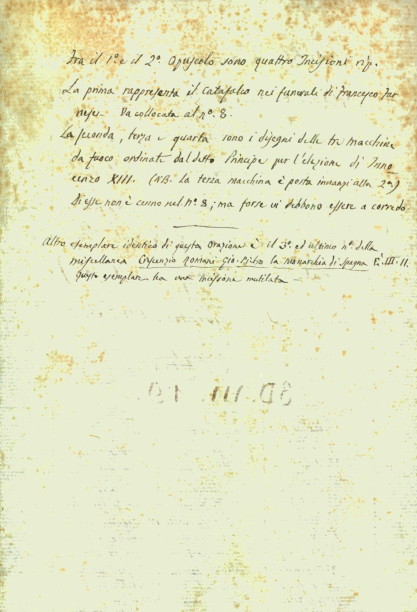 Tra il 1º e il 2º Opuscolo sono quattro Incisioni rip.
La prima rappresenta il catafalco nei funerali di Francesco Far
nese. Va collocata al nº 8.
La seconda, terza e quarta sono i disegni delle tre macchine
da fuoco ordinate dal detto Principe per l'elezione di Inno
cenzo XIII. (NB. la terza macchina è posta innanzi alla 2a)
Di esse non è cenno nel nº 8; ma forse vi debbono essere a corredo.
Altro esemplare identico di questa orazione è il 3º ed ultimo nº della
miscellanea Crescenzio Romani Gio. Pietro la monarchia di Spagna E. III. 11.
Questo esemplare ha una incisione mutilata
3D. III. 19